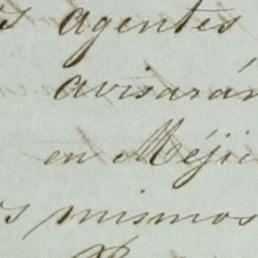 s agentes
avisarán
en Méji
s mismos